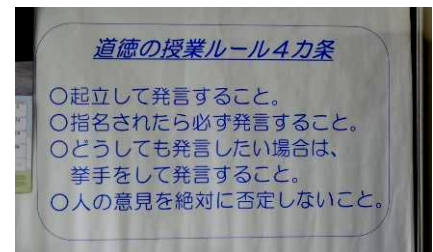 道徳の授業ルール4カ条
○起立して発言すること。
○指名されたら必ず発言すること。
○どうしても発言したい場合は、
挙手をして発言すること。
○人の意見を絶対に否定しないこと。